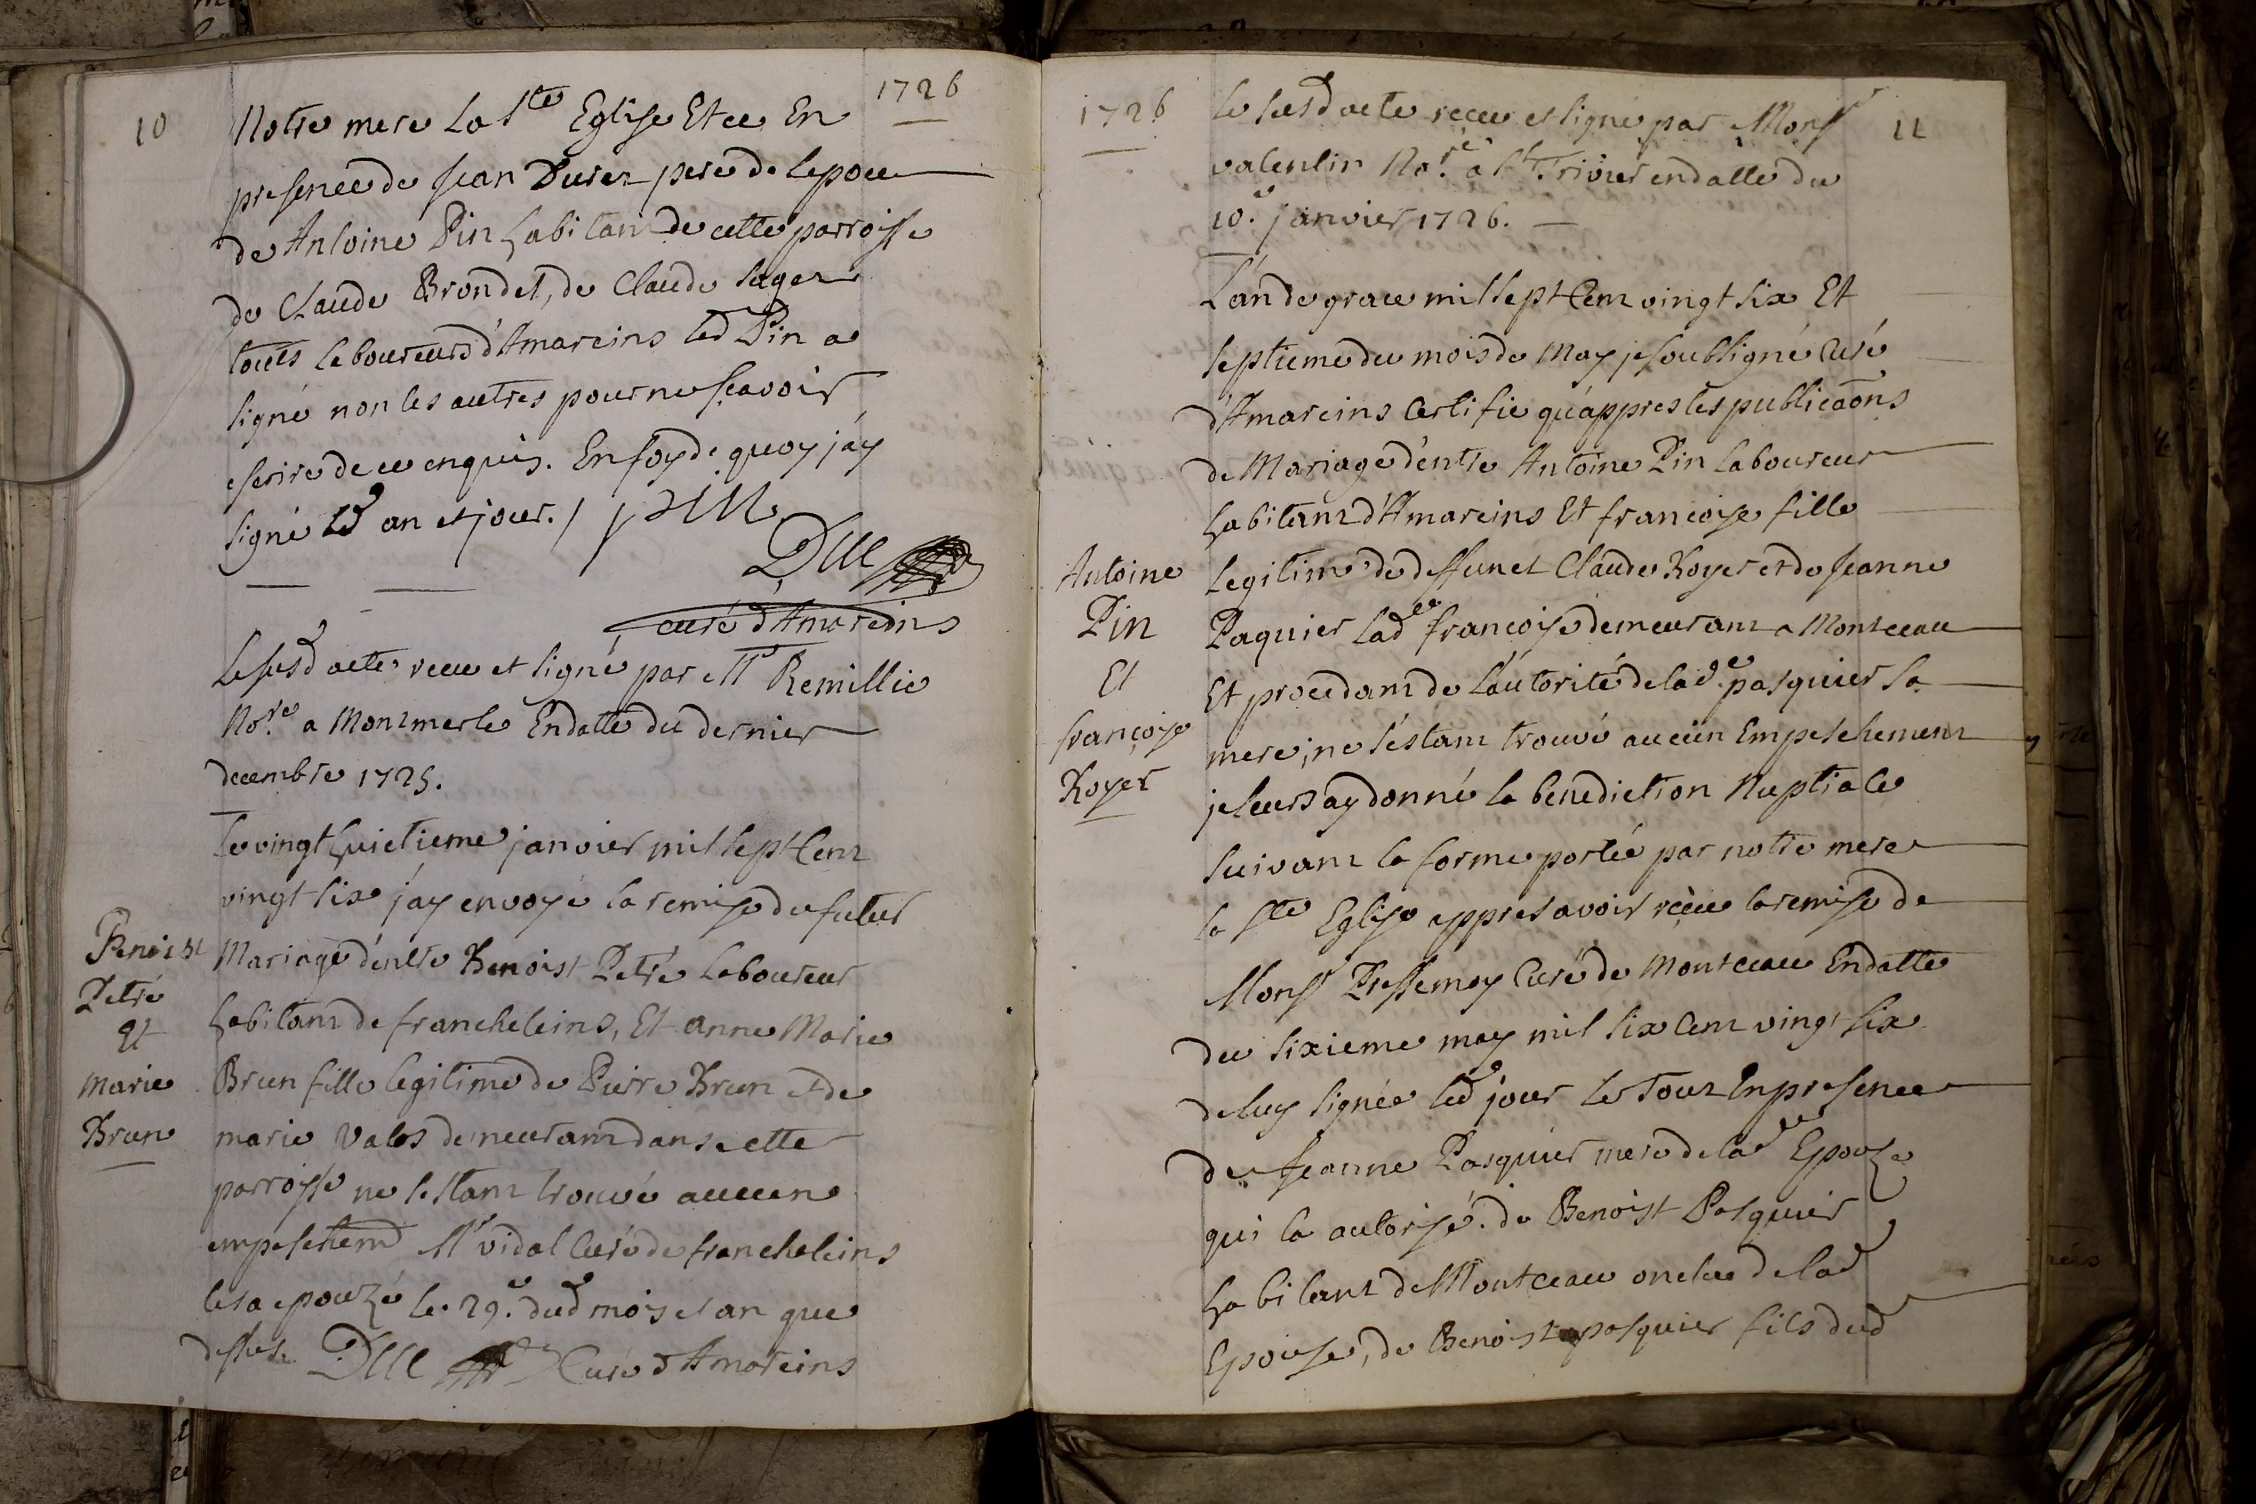 10
1726
Notre mere la Ste Eglise Et ce En
presence de Jean Durer pere de lepoue
de Antoine Pin habitant de cette parroisse
de Claude Brondel, de Claude lager
touts laboureurs d'Amareins led Pin a
signé non les autres pour ne sçavoir
escrire de ce enquis. En foy de quoy j'ay
signé led an et jour. / pin
Duc
curé d'Amareins
le susd acte receu et signé par Mr Remillie
Nore a Montmerle En datte du dernier
decembre 1725.
Le vingt huictieme janvier mil sept Cent
vingt six j'ay envoyé la remise du futur
Benoist
Petré
et
marie
Brun
Mariage d'entre Benoist Petré laboureur
habitant de francheleins, Et anne Marie
Brun fille legitime de Pierre Brun et de
marie Valos demeurant dans cette
parroisse ne s'estant trouvé aucun
empeschemt Mr vidal Curé de francheleins
les a epouzé le 29e dud mois et an que
dessus. Duc Curé d'Amareins
1726
11
le susd acte receu et signé par Monsr
valentin Nore a St Trivier en datte du
10e janvier 1726.
L'an de grace mil sept Cent vingt six Et
septieme du mois de May je soubsigné Curé
d'Amareins Certifie qu'appres les publicaons
de Mariage d'entre Antoine Pin laboureur
habitant d'Amareins Et françoise fille
Antoine
Pin
Et
françoise
Royer
legitime de deffunct Claude Royer et de Jeanne
Paquier lade françoise demeurant a Montceau
Et procedant de l'autorité de lade pasquier sa
mere, ne s'estant trouvé aucun Empeschement
je leurs ay donné la benediction Nuptiale
suivant la forme portée par notre mere
la Ste Eglise appres avoir receu la remise de
Monsr Pressemoy Curé de Montceau En datte
du sixieme may mil six Cent vingt six
de luy signée led jour le Tout En presence
de Jeanne Pasquier mere de lade Epouze
qui la autorisé. de Benoist Pasquier
habitant de Montceau oncle de lad
Epouse, de Benoist pasquier fils dud